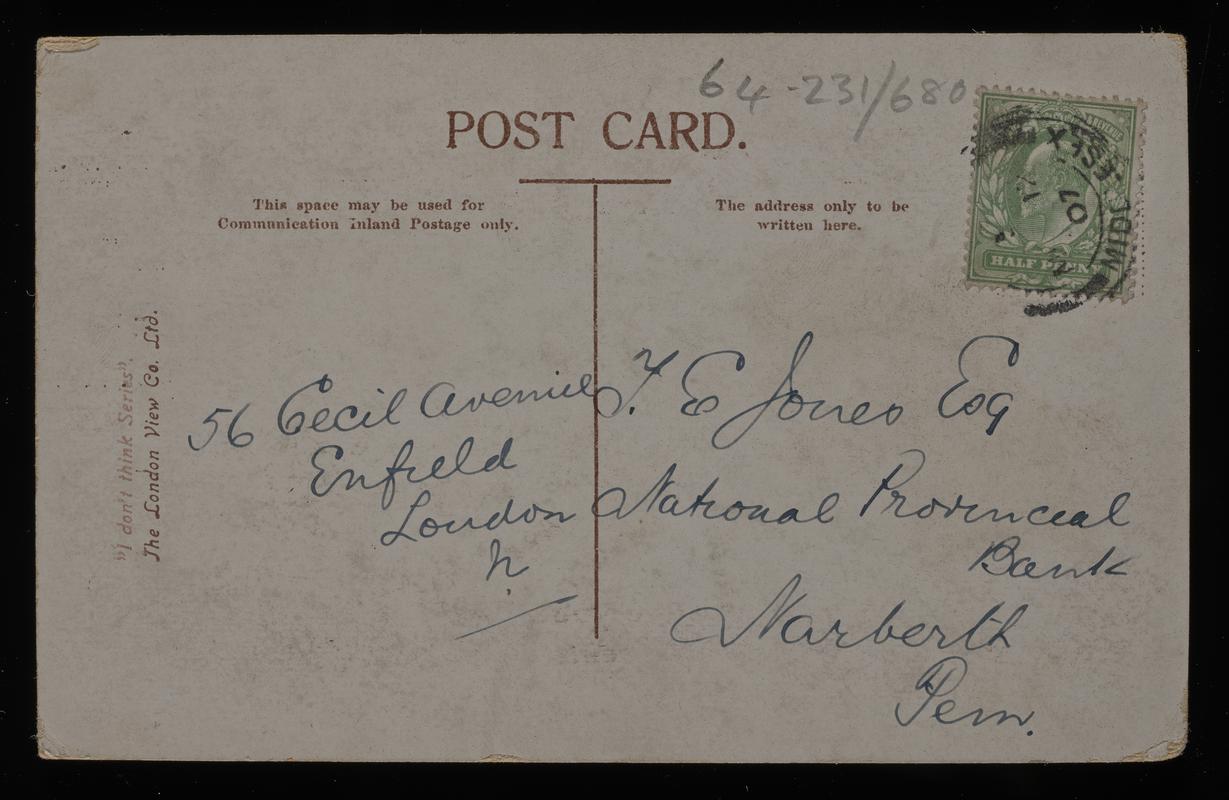 64-231/680
POST CARD.
This space may be used for
Communication Inland Postage only.
The address only to be
written here.
HALF PENNY
MIDDLESEX
07
"I don't think Series".
The London View Co. Ltd.
56 Cecil Avenue
Enfield
London
N.
T. E Jones Esq
National Provincial
Bank
Narberth
Pem.